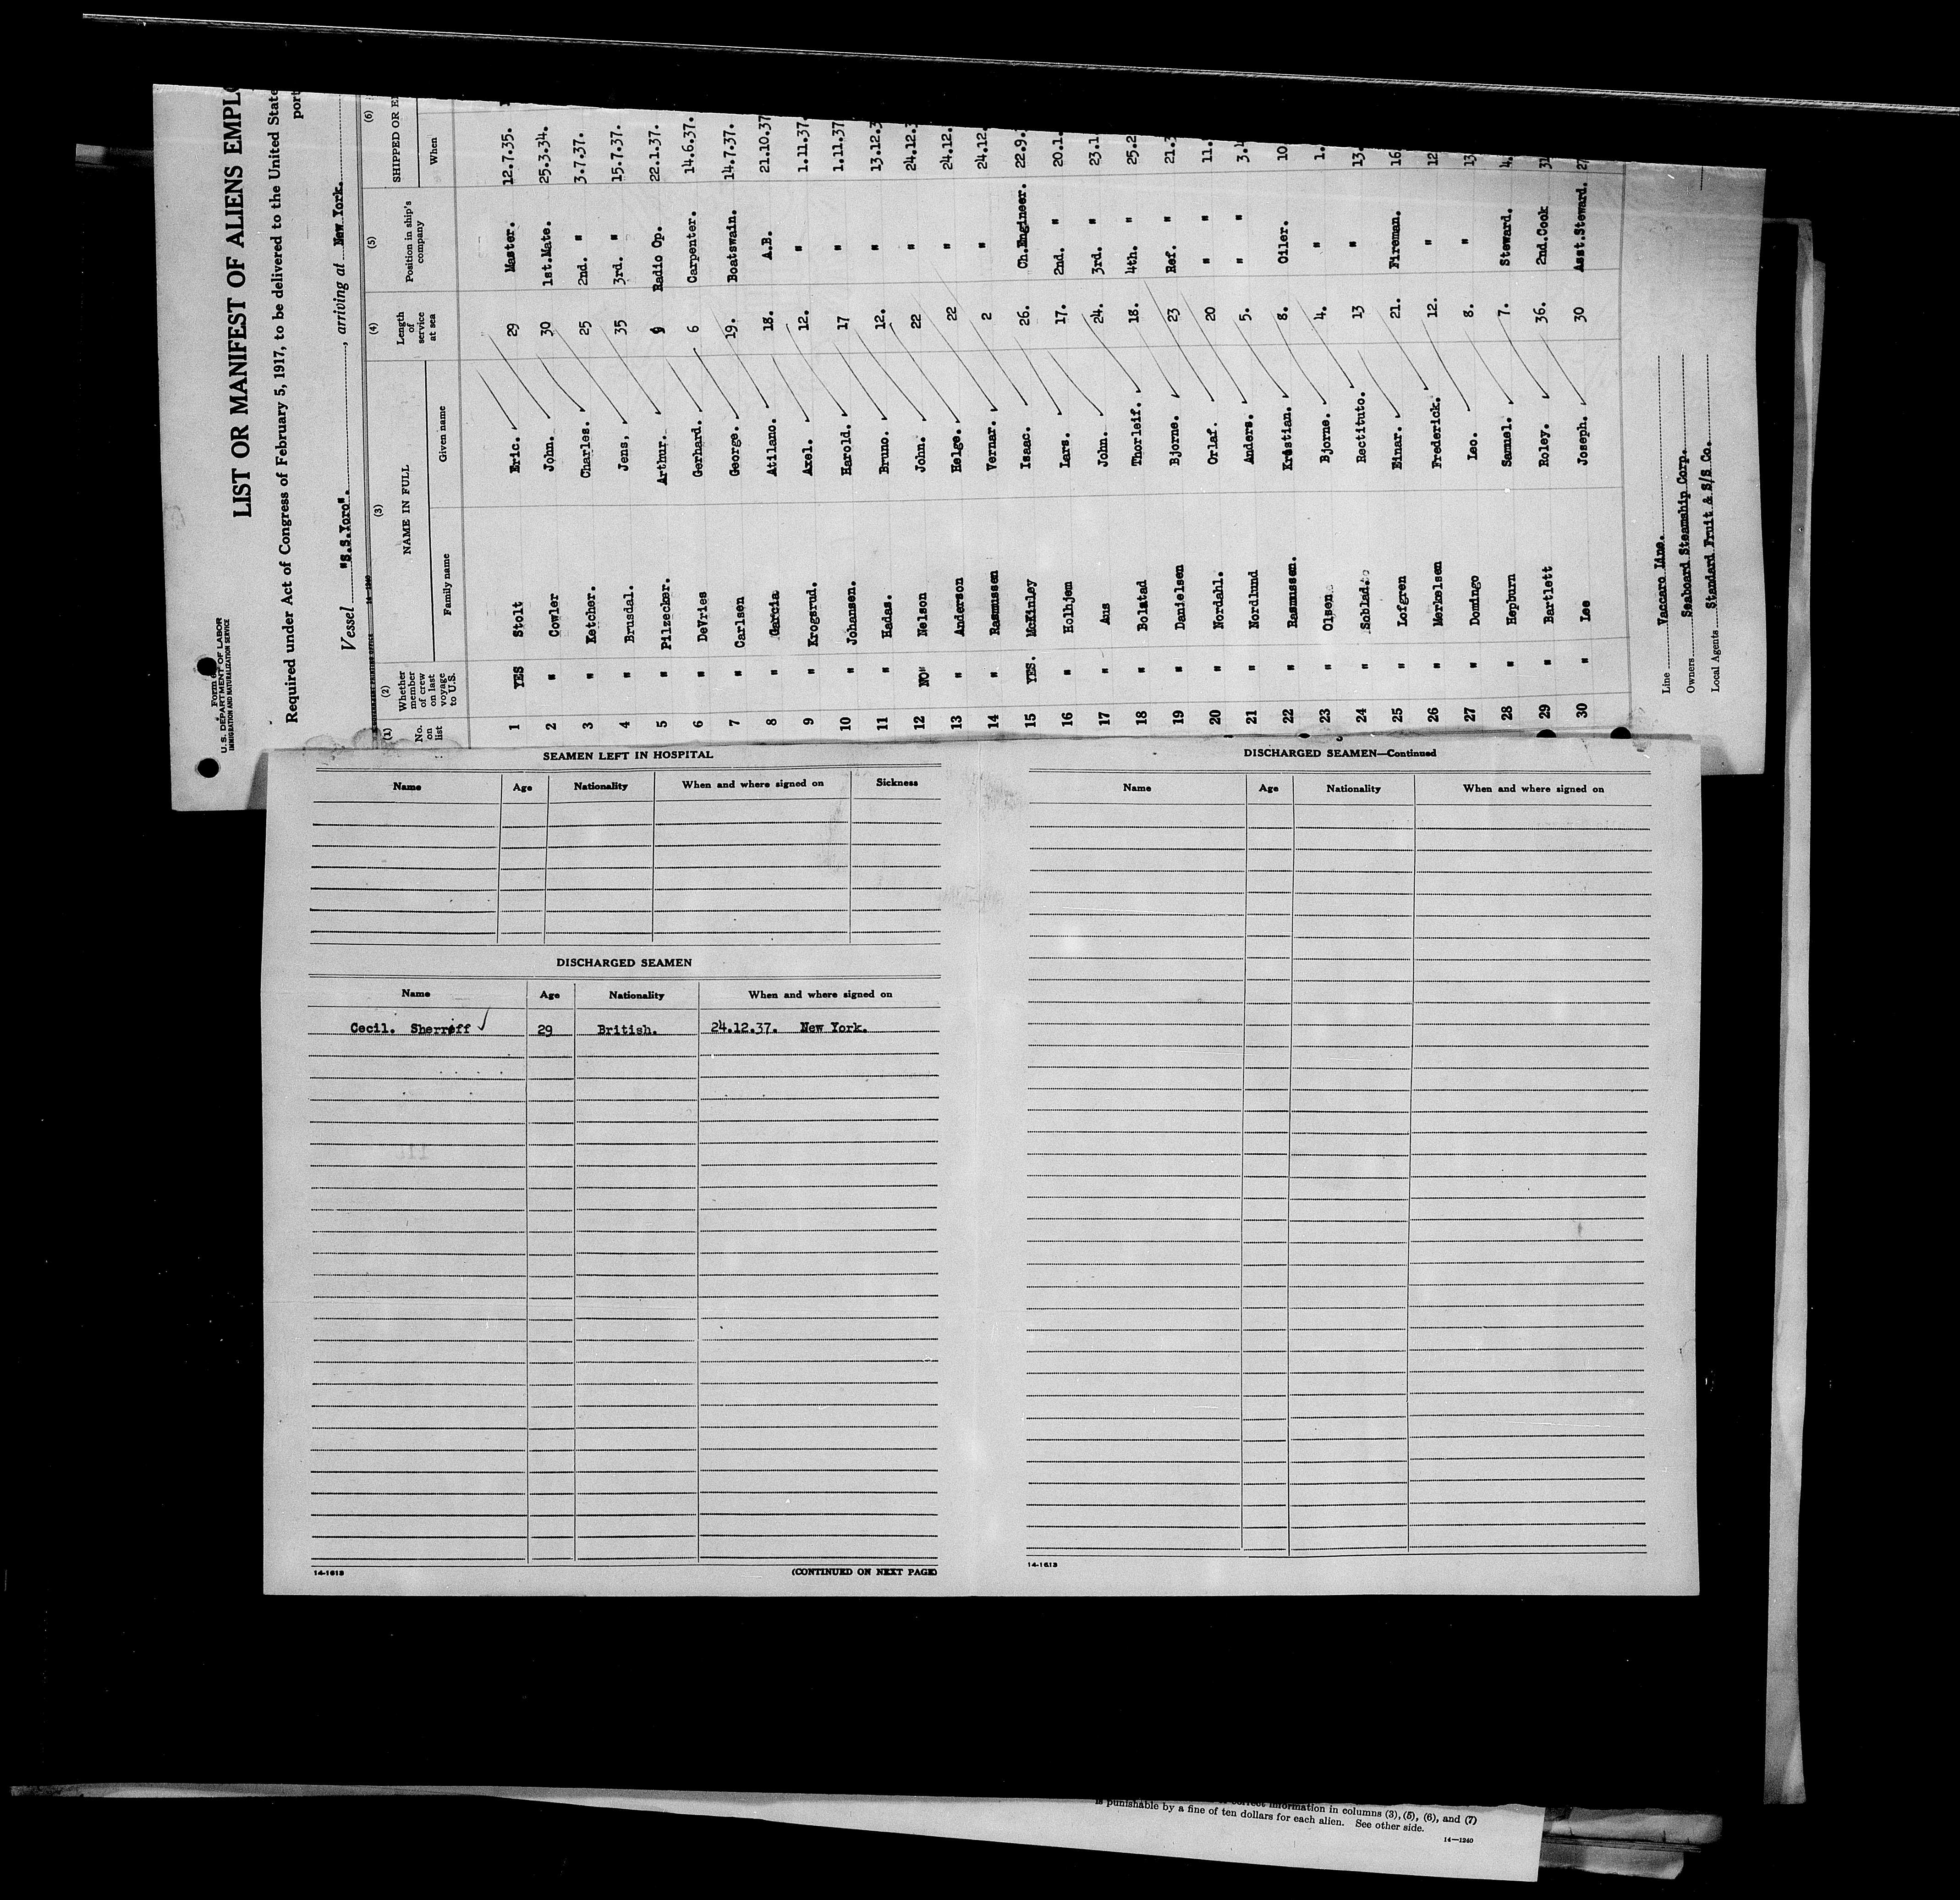 U.S. DEPARTMENT OF LABOR
IMMIGRATION AND NATURALIZATION SERVICE
LIST OR MANIFEST OF ALIENS EMPLO
Required under Act of Congress of February 5, 1917, to be delivered to the United State
port
Vessel "S.S.Yoro"., arriving at New York.
(1) (2) (3) (4) (5) (6)
No. on list Whether member of crew on last voyage to U.S. NAME IN FULL Family name Given name Length of service at sea Position in ship's company SHIPPED OR E When
1 YES Stolt Eric. 29 Master. 12.7.35.
2 " Cowler John. 30 1st.Mate. 25.3.34.
3 " Ketcher. Charles. 25 2nd. " 3.7.37.
4 " Brusdal. Jens. 35 3rd. " 15.7.37.
5 " Pilzecker. Arthur. 9 Radio Op. 22.1.37.
6 " DeVries Gerhard. 6 Carpenter. 14.6.37.
7 " Carlsen George. 19. Boatswain. 14.7.37.
8 " Garcia Atilano. 18. A.B. 21.10.37
9 " Krogsrud. Axel. 12. " 1.11.37.
10 " Johansen. Harold. 17 " 1.11.37
11 " Hadas. Bruno. 12. " 13.12.3
12 NO" Nelson John. 22 " 24.12.
13 " Anderson Helge. 22 " 24.12.
14 " Rasmussen Vernar. 2 " 24.12.
15 YES. McKinley Isaac. 26. Ch.Engineer. 22.9.
16 " Holhjem Lars. 17. 2nd. " 20.1.
17 " Aus John. 24. 3rd. " 23.1
18 " Bolstad Thorleif. 18. 4th. " 25.2
19 " Danielsen Bjorne. 23 Ref. " 21.3
20 " Nordahl. Orlaf. 20 " " 11.
21 " Nordlund Anders. 5. " " 3.
22 " Rasmussen. Kristian. 8. Oiler. 10
23 " Olsen Bjorne. 4. " 1.
24 " Soblad. Rectituto. 13 " 13.
25 " Lofgren Einar. 21. Fireman. 16
26 " Merkelsen Frederick. 12. " 12
27 " Domingo Leo. 8. " 13
28 " Hepburn Samuel. 7. Steward. 4.
29 " Bartlett Roley. 36. 2nd.Cook 31
30 " Lee Joseph. 30 Asst.Steward. 27
Line Vaccaro Line.
Owners Seaboard Steamship Corp.
Local Agents Standard Fruit & S/S Co.
SEAMEN LEFT IN HOSPITAL
Name Age Nationality When and where signed on Sickness
DISCHARGED SEAMEN
Name Age Nationality When and where signed on
Cecil. Sherreff 29 British. 24.12.37. New York.
14-1613 (CONTINUED ON NEXT PAGE)
DISCHARGED SEAMEN—Continued
Name Age Nationality When and where signed on
14-1613
correct information in columns (3), (5), (6), and (7)
is punishable by a fine of ten dollars for each alien. See other side.
14—1240